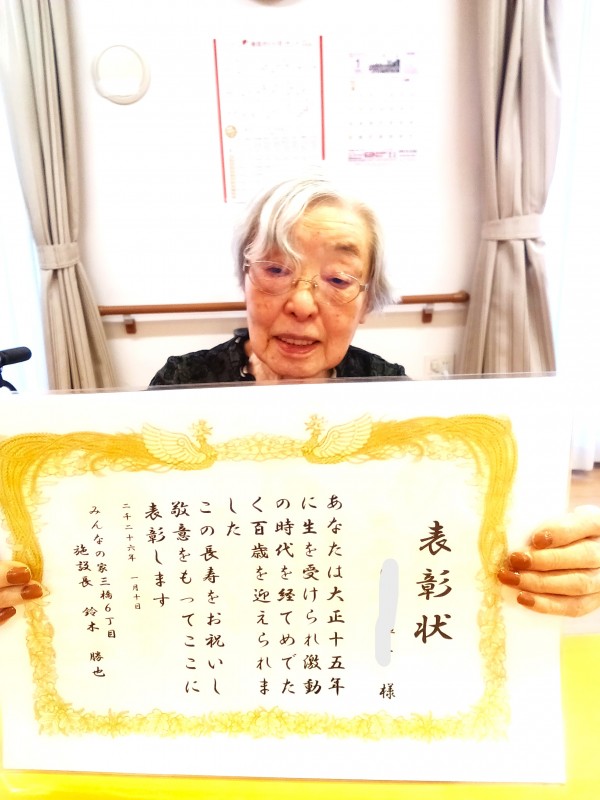 表彰状
様
あなたは大正十五年
に生を受けられ激動
の時代を経てめでた
く百歳を迎えられま
した
この長寿をお祝いし
敬意をもってここに
表彰します
二千二十六年 一月十日
みんなの家三橋6丁目
施設長 鈴木 勝也